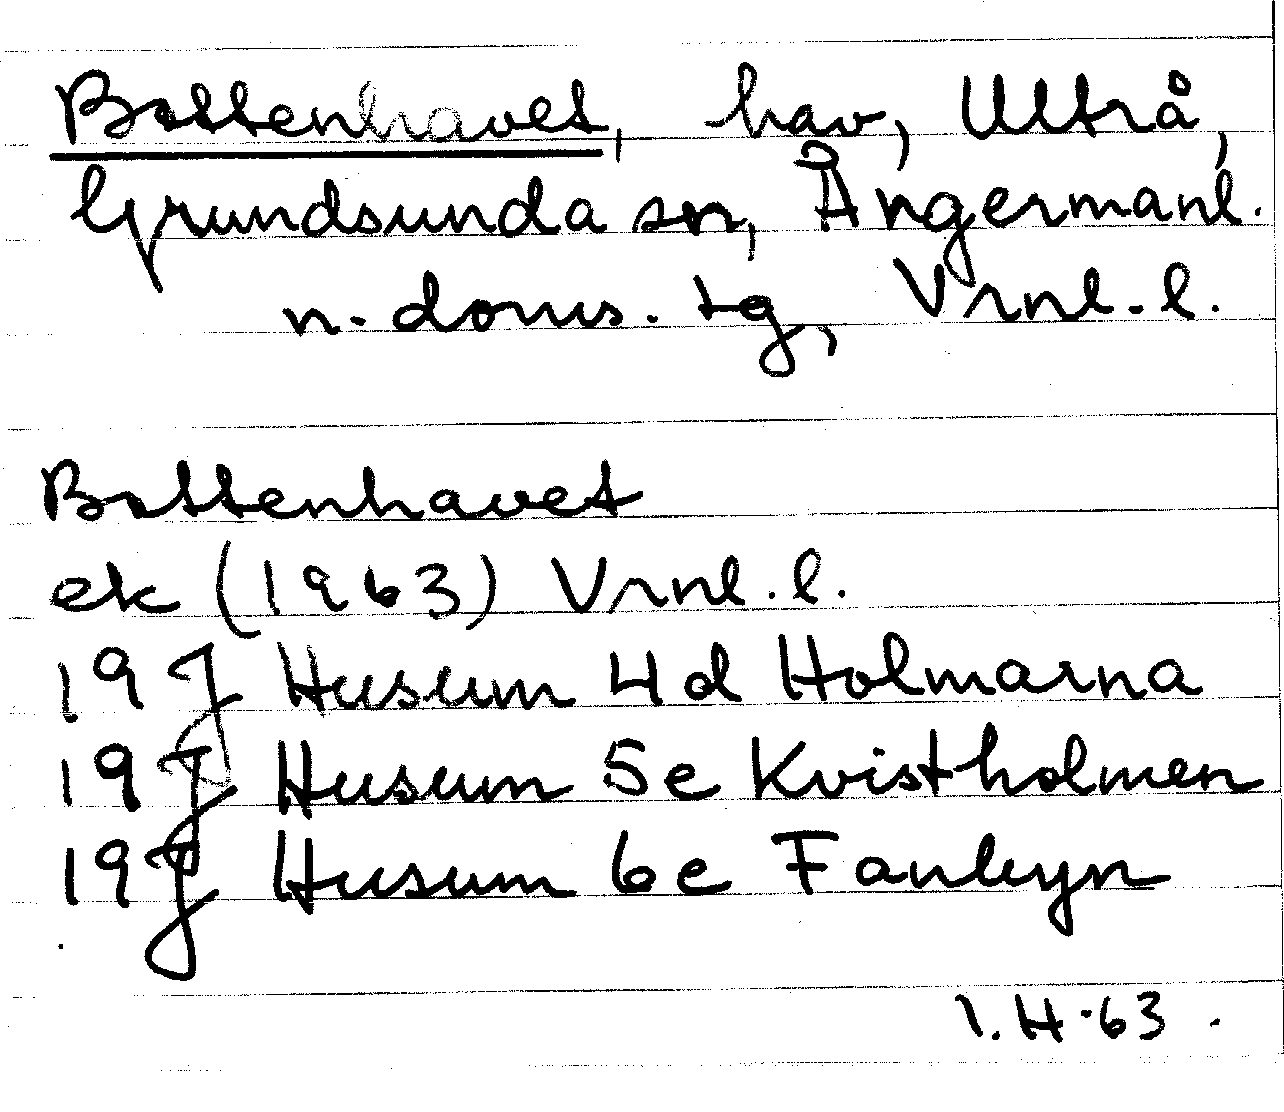 Bottenhavet, hav, Ultrå,
Grundsunda sn, Ångermanl.
n. doms. tg, Vrnl. l.
Bottenhavet
ek (1963) Vrnl. l.
19 J Husum 4d Holmarna
19 J Husum 5e Kvistholmen
19 J Husum 6e Fanbyn
I. H-63.